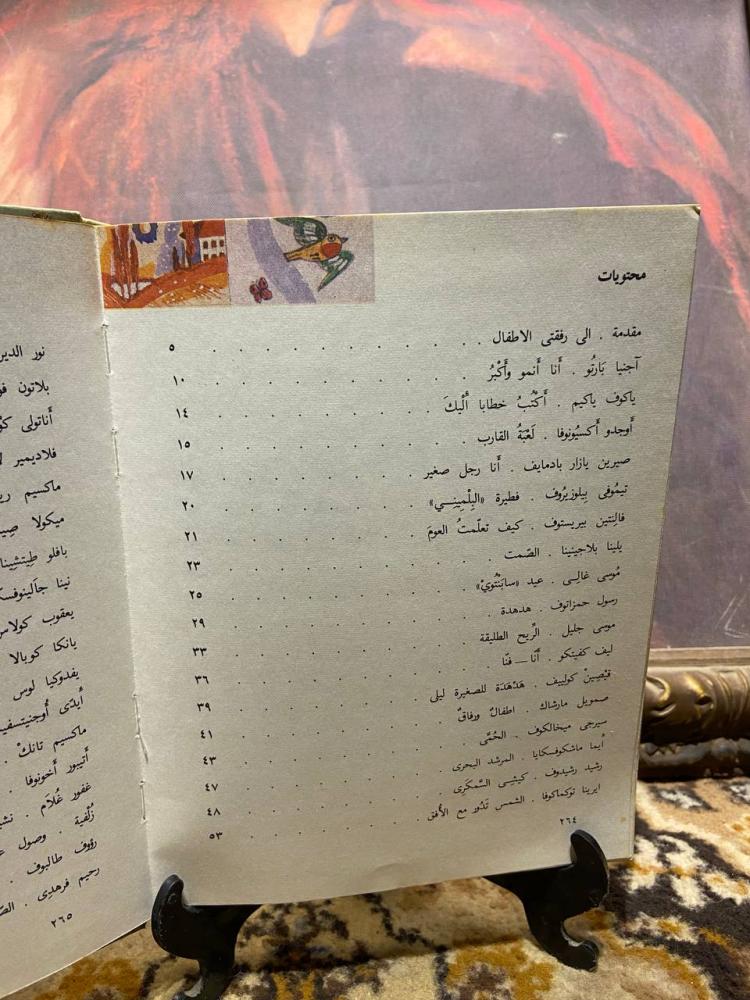 محتويات
مقدمة . الى رفقتى الاطفال . . . . . . . . . . ٥
آجنيا بَارتُو . أَنا أَنمو وأَكْبُرُ . . . . . . . . . . ١٠
ياكوف ياكيم . أَكتُبُ خطابا أَلْيكَ . . . . . . . . . ١٤
أوجدو أَكسيُونوفا . لَعْبَةُ القارب . . . . . . . . ١٥
صيرين يازار بادمايف . أَنا رجل صغير . . . . . . . ١٧
تيمُوفى بِيلوزيرُوف . فطيرة «البِلْمِينِــي» . . . . . . . ٢٠
فالنتين بيريستوف . كيف تعلّمتُ العومَ . . . . . . . ٢١
يلينا بلاجينينا . الصّمت . . . . . . . . . ٢٣
مُوسى غالِــى . عيد «سابَنْتُويْ» . . . . . . . . ٢٥
رسول حمزاتوف . هدهدة . . . . . . . . . ٢٩
موسى جليل . الرِّيح الطليقة . . . . . . . . ٣٣
ليف كفيتكو . أَنّا — فنّا . . . . . . . . . ٣٦
قيْصِينْ كولييف . هَدْهَدَة للصغيرة ليلى . . . . . . . ٣٩
صمويل مارشاك . اطفالٌ ورفاقٌ . . . . . . . ٤١
سيرجى ميخالكوف . الحُمَّى . . . . . . . . ٤٣
أيما ماشكوفسكايا . المرشد البحرى . . . . . . . ٤٧
رشيد رشيدوف . كيشِــى السَّمكَرِى . . . . . . . ٤٨
ايرينا توكماكوفا . الشمس تَدُور مع الأُفق . . . . . . ٥٣
٢٦٤
نور الدين
بلاتون
أَناتولى
فلاديمير
ماكسيم
ميكولا
بافلو طِيتشِينا
نينا جاَلينوفسكا
يعقوب كولاس
يانكا كوبالا
يفدوكيا لوس
أيدّى أُوجنيتسفيت
ماكسيم تانكْ .
أتيبور أخونوفا .
غفور غُلَام .
زُلْفية . وصول
رؤوف طالبوف .
رحيم فرهدى .
٢٦٥